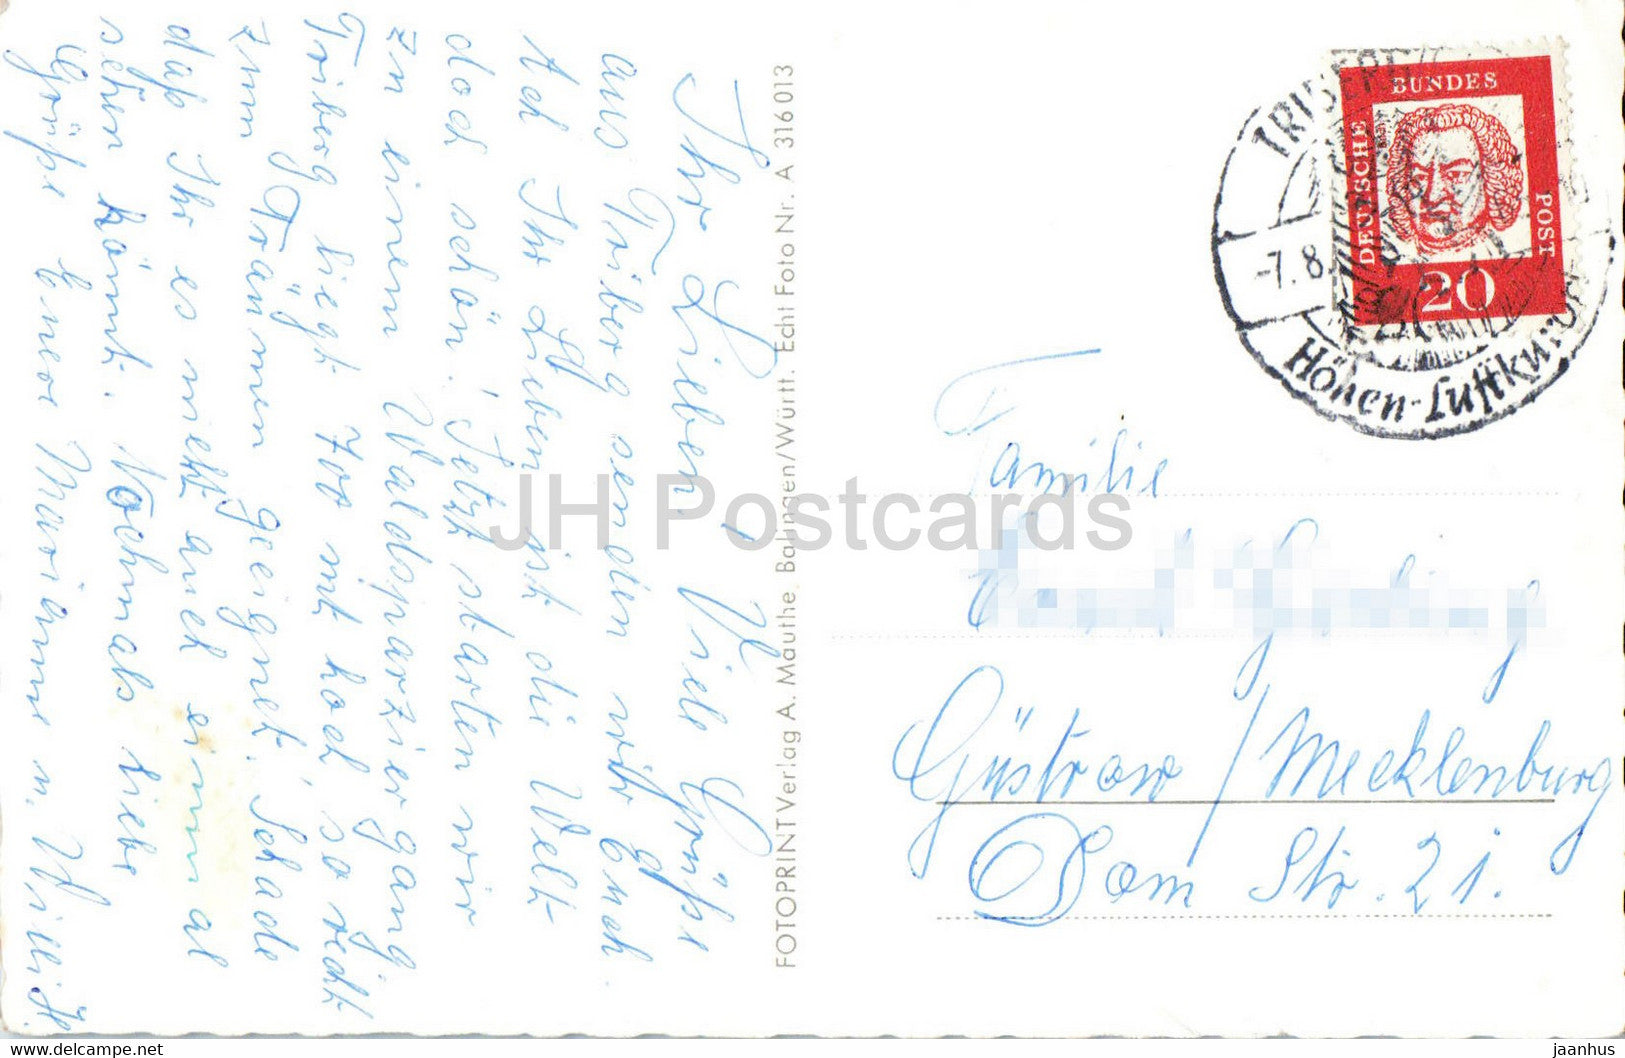 Ihr Lieben! Viele Grüße
aus Triberg senden wir Euch.
Ach Ihr Lieben ist die Welt
doch schön! Jetzt starten wir
zu einem Waldsparziergang
Triberg liegt 700 mt hoch, so recht
zum Träumen geeignet. Schade
daß Ihr es nicht auch einmal
sehen könnt. Nochmals liebe
Grüße Eurer Marianne u. Willi H.
FOTOPRINT Verlag A. Mauthe. Balingen/Württ. Echt Foto Nr. A 316013
DEUTSCHE
BUNDES
POST
20
TRIBERG
-7.8
Höhen-Luftkurort
Familie
Güstrow/Mecklenburg
Dom Str. 21.
JH Postcards
delcampe.net
jaanhus